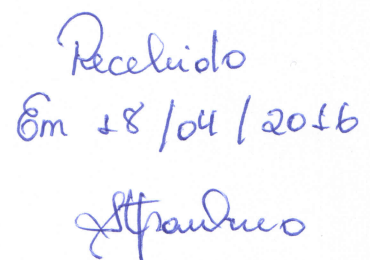 Recebido
Em 18/04/2016